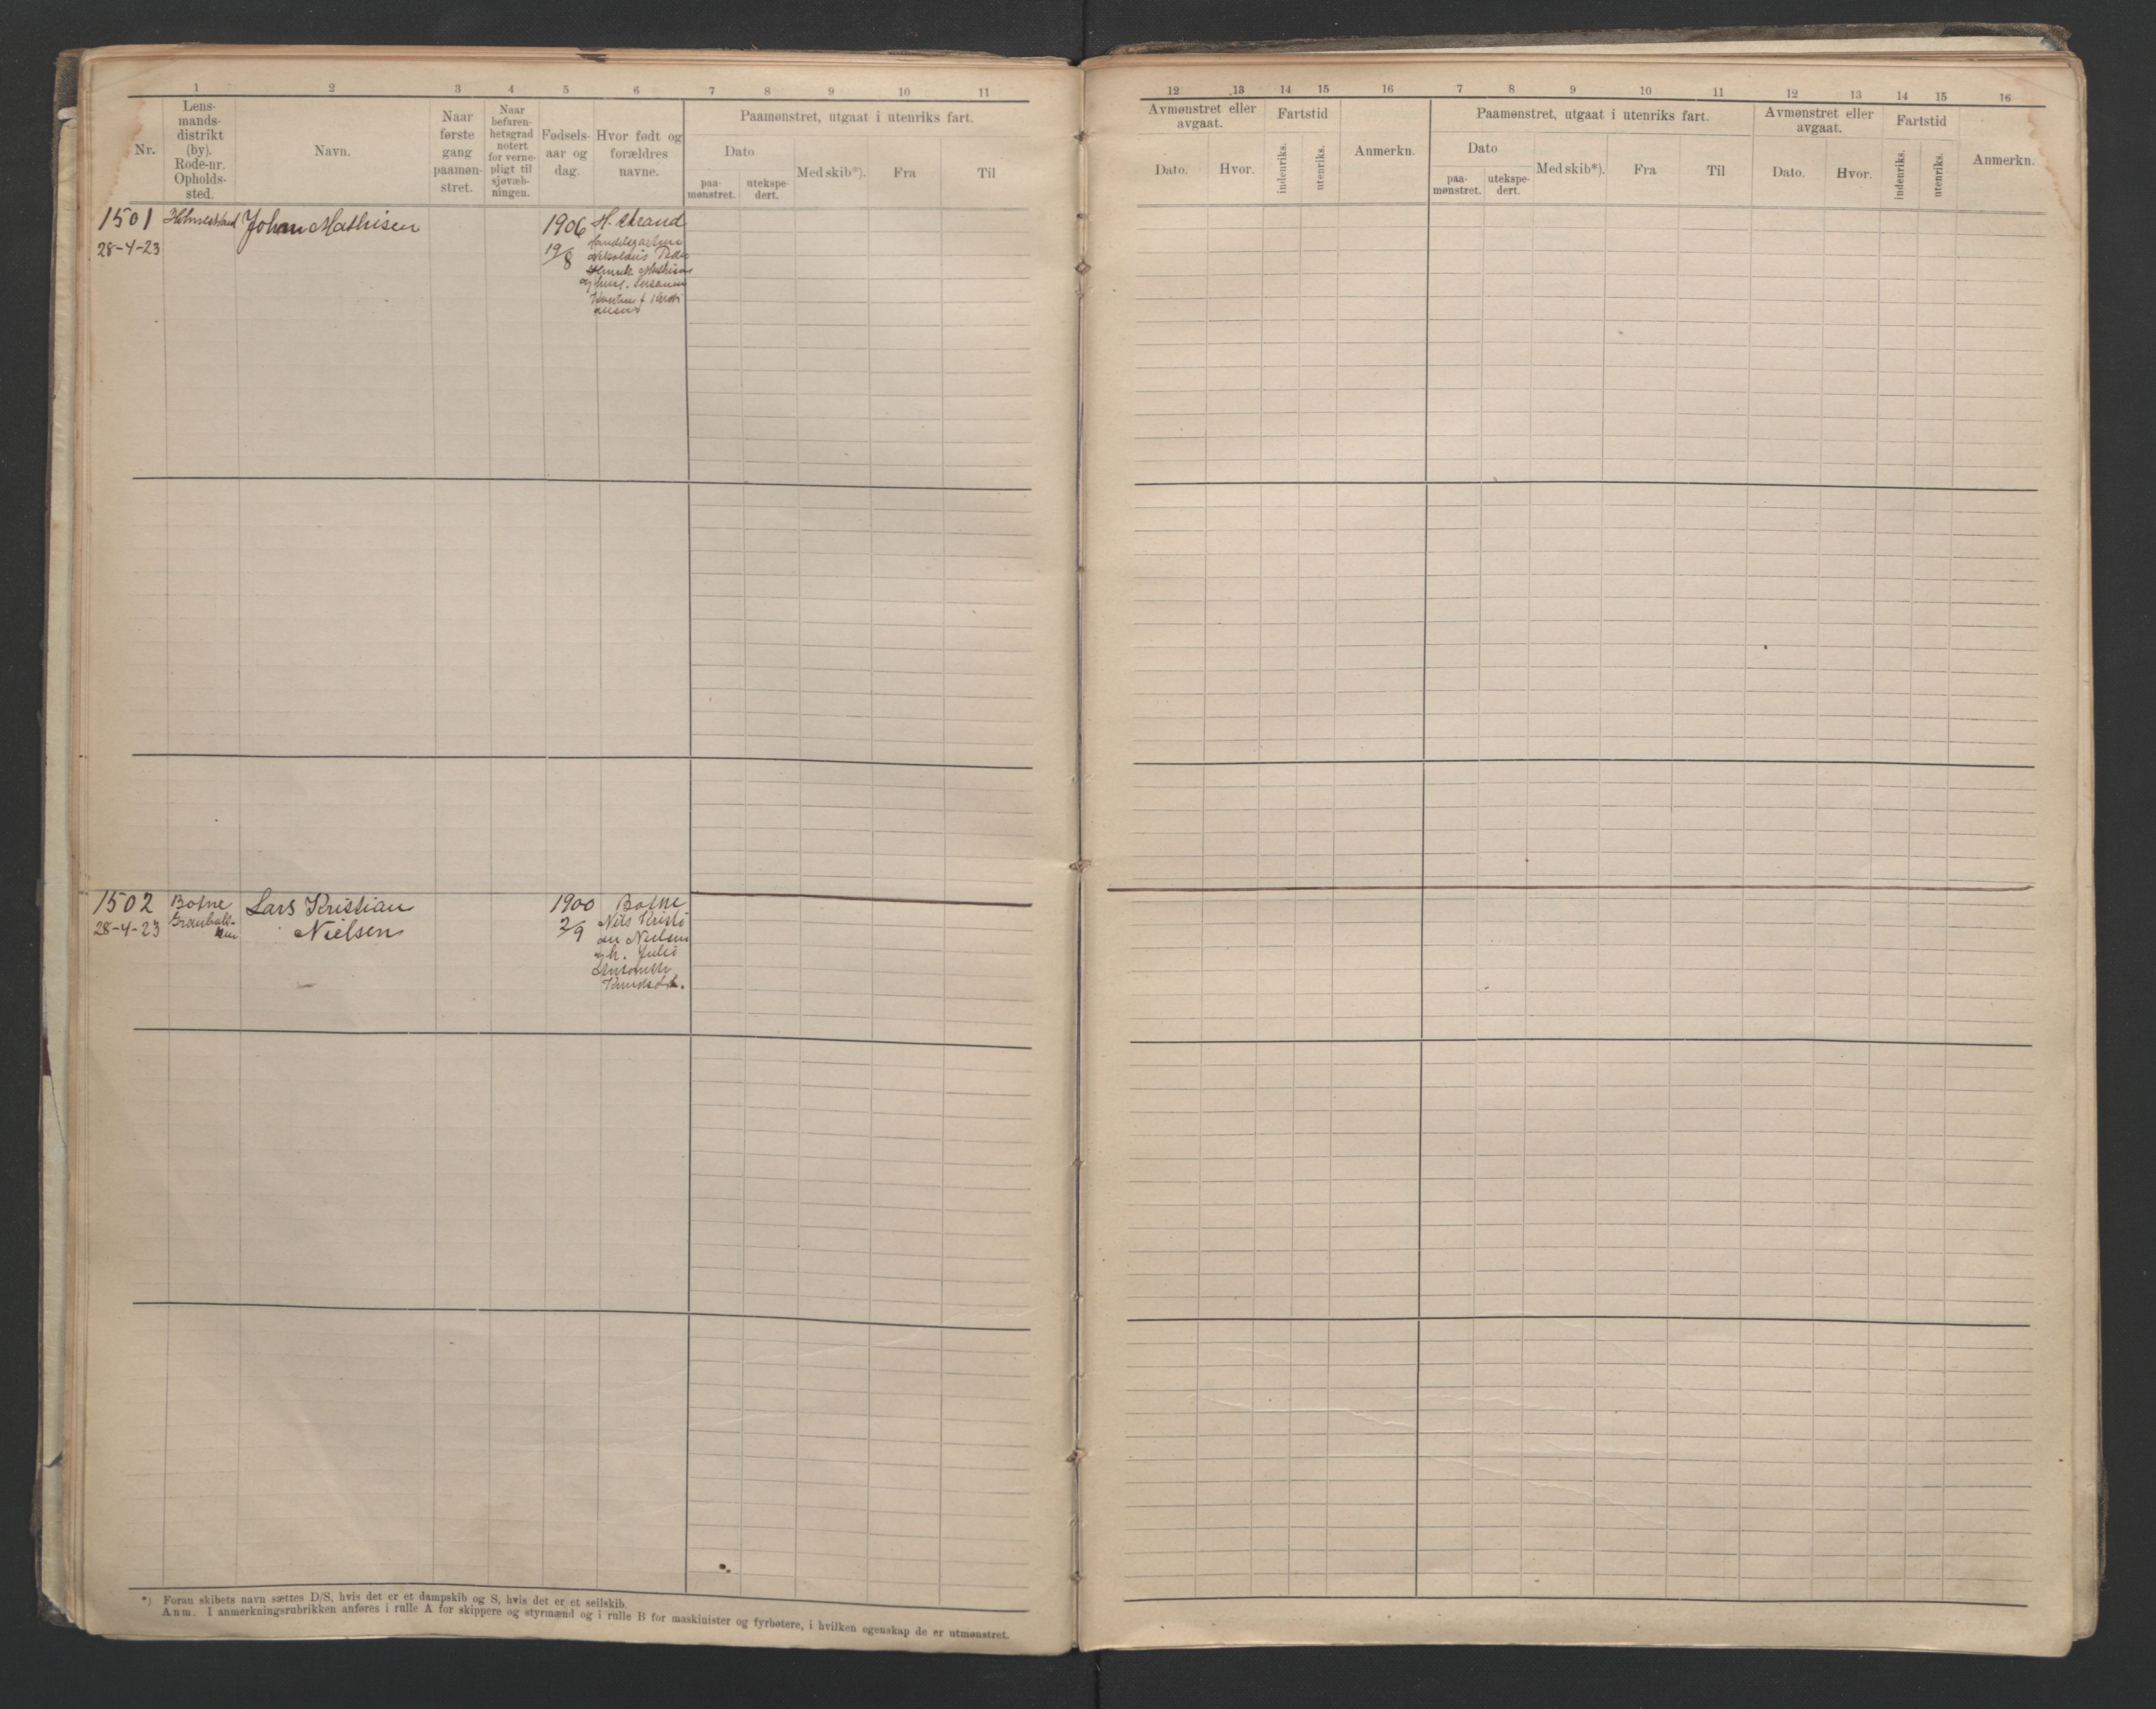 1 2 3 4 5 6 7 8 9 10 11
Nr.
Lens-
mands-
distrikt
(by).
Rode-nr.
Opholds-
sted.
Navn.
Naar
første
gang
paamøn-
stret.
Naar
befaren-
hetsgrad
notert
for verne-
pligt til
sjøvæb-
ningen.
Fødsels-
aar og
dag.
Hvor født og
forældres
navne.
Paamønstret, utgaat i utenriks fart.
Dato
paa-
mønstret.
utekspe-
dert.
Med skib*).
Fra
Til
1501
28-4-23
Holmestrand
Johan Mathisen
1906
19/8
H. strand
1502
28-4-23
Botne
Lars Kristian
Nielsen
1900
2/9
Botne
Nils Kristi
an Nielsen
og h. Julie
*) Foran skibets navn sættes D/S, hvis det er et dampskib og S, hvis det er et seilskib.
Anm. I anmerkningsrubrikken anføres i rulle A for skippere og styrmænd og i rulle B for maskinister og fyrbøtere, i hvilken egenskap de er utmønstret.
12 13 14 15 16 7 8 9 10 11 12 13 14 15 16
Avmønstret eller
avgaat.
Dato.
Hvor.
Fartstid
indenriks.
utenriks.
Anmerkn.
Paamønstret, utgaat i utenriks fart.
Dato
paa-
mønstret.
utekspe-
dert.
Med skib*).
Fra
Til
Avmønstret eller
avgaat.
Dato.
Hvor.
Fartstid
indenriks.
utenriks.
Anmerkn.